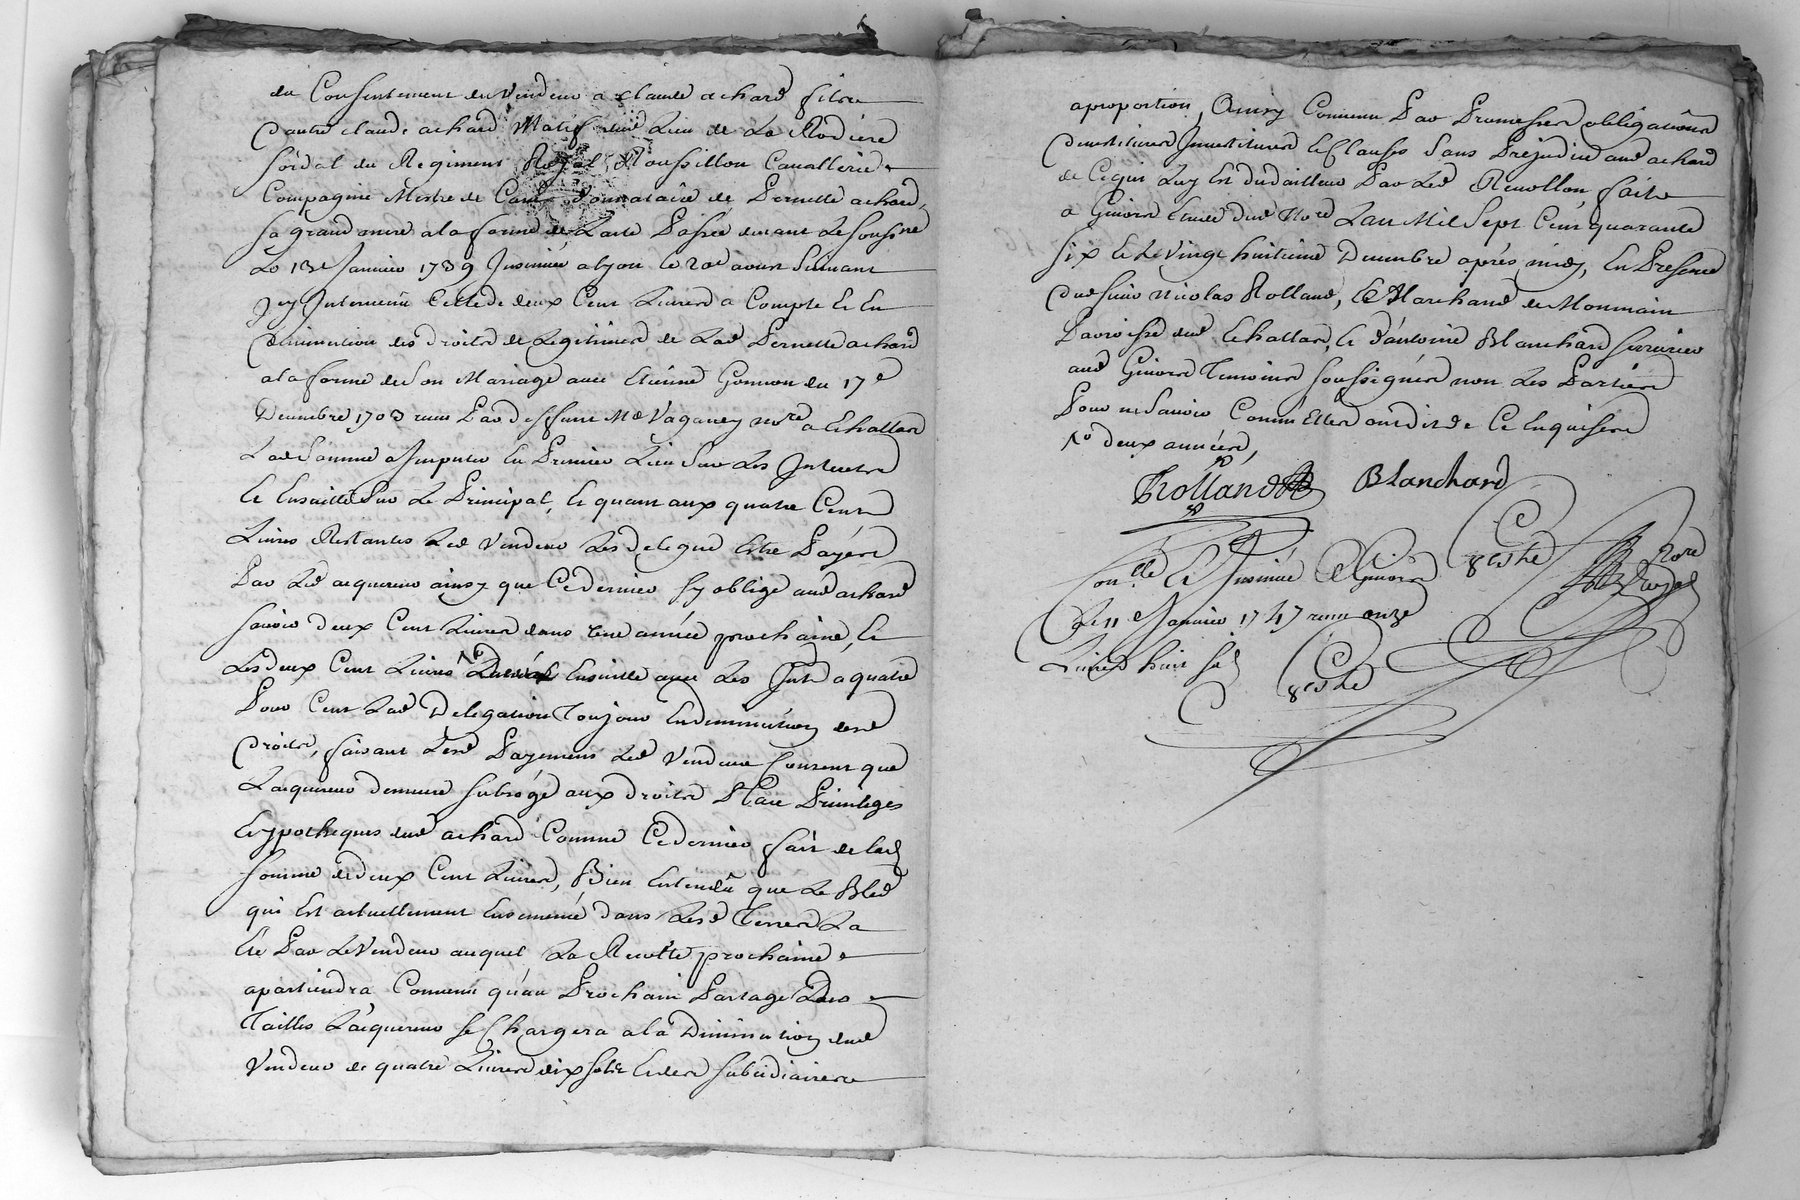 du Consentement du Vendeur a Claude achard fils
d'autre claude achard Natif dud Lieu de La Rodiere
soldat du Regiment Royal Roussillon Cavallerie
Compagnie Mestre de Camp donnataire de Pernette achard,
sa grand mere a la forme de Lacte Passé devant Le soussné
Le 13e Janvier 1739 Insinué a lyon le 20e avout suivant
Icy Intervenu Celle de deux Cent Livres a Compte et En
diminution des droits de Legitimes de Lad Pernette achard
a la forme de son Mariage avec Etienne Gonnon du 17e
Decembre 1703 receu Par deffunt Me Vaganey nore a Echallas
Lad Somme a Imputer En Premier Lieu Sur Les Interets
Et Ensuitte Sur Le Principal, Et quant aux quatre Cent
Livres Restantes Led Vendeur Les delegue Estre Payées
Par Led acquereur ainsy que Ce dernier sy oblige aud achard
scavoir deux Cent Livres dans une année prochaine, Et
Les deux Cent Livres Ensuitte avec Les Ints a quatre
Pour Cent Lad Delegation Toujour En diminution desd
droits, faisant Lesd Payemens Led Vendeur Consent que
Lacquereur demeure subrogé aux droits Place Privileges
Et ypotheques dud achard Comme Ce dernier fait de lad
somme de deux Cent Livres, Bien Entendû que Le Bled
qui Est actuellement Ensemencé dans Lesd Terres La
Eté Par Le Vendeur auquel La Recolte prochaine
apartiendra Convenu qu'au Prochain Partage Des
Tailles Lacquereur se Chargera a la Diminution dud
Vendeur de quatre Livres dix sols Et des subsidiaires
a proportion, Ainsy Convenu Par Promesses obligations
devestitures Investitures Et Clauses Sans Prejudice aud achard
de Ce qui Luy Est du dailleurs Par Led Revollon, fait
a Givors Etude dud Nore Lan Mil Sept Cent quarante
six Et Le vingt huitieme Decembre aprés midy, En Presence
de sieur Nicolas Rolland, Marchand de Monmain
Parroisse dud Echallas, Et d'antoine Blanchard serrurier
aud Givors Temoins soussignés non Les Parties
Pour ne Scavoir Comm'Elles ont dit de Ce Enquises
deux années,
Rolland Blanchard
Conllé Et Insinué A Givors
Le 11 Janvier 1747 receu onze
Livres huit sols
Nore
Royal